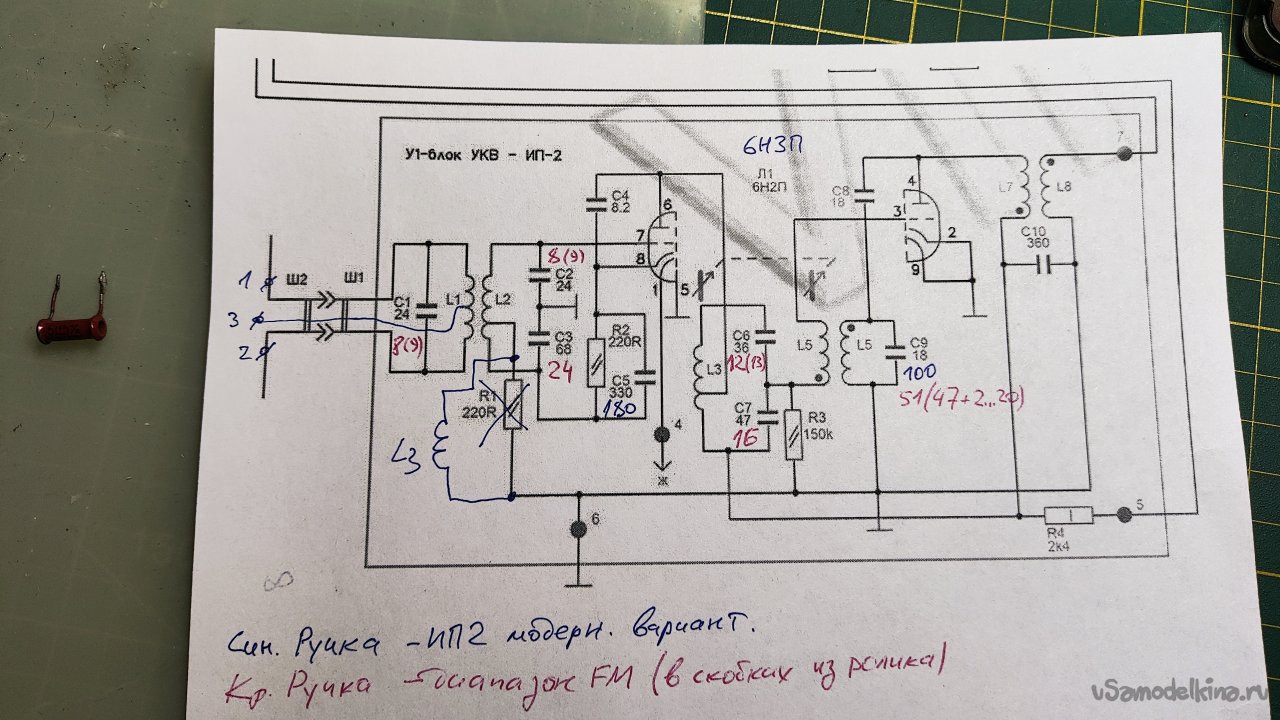 У1-блок УКВ - ИП-2
6Н3П
Л1
6Н2П
7
C4
8.2
6
7
8
1
5
C8
18
4
3
2
9
L7
L8
C10
360
1
3
2
Ш2
Ш1
C1
24
8(9)
L1
L2
8(9)
C2
24
C3
68
24
R2
220R
C5
330
180
R1
220R
L3
L3
C6
36
12(13)
C7
47
16
L5
L5
C9
18
100
51(47+2...20)
R3
150k
4
Ж
6
5
R4
2k4
Син. Ручка - ИП2 модерн. вариант.
Кр. Ручка - Диапазон FM (в скобках из ролика)
uSamodelkina.ru